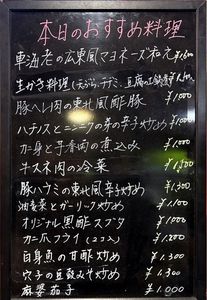 本日のおすすめ料理
車海老の広東風マヨネーズ和え ¥1,600
生かき料理(天ぷら、チヂミ、豆腐の土鍋煮)
豚ヒレ肉の東北風酢豚 ¥1,000
ハチノスとニンニクの芽の辛子炒め ¥1,000
カニ身と干香肉の煮込み ¥1,000
牛スネ肉の冷菜 ¥1,300
豚ハラミの東北風辛子炒め ¥1,300
油麦菜とガーリック炒め ¥1,000
オリジナル黒酢スブタ ¥1,000
カニ爪フライ(2コ入) ¥1,200
白身魚の甘酢炒め ¥1,300
穴子の豆鼓みそ炒め ¥1,300
麻婆茄子 ¥1,000